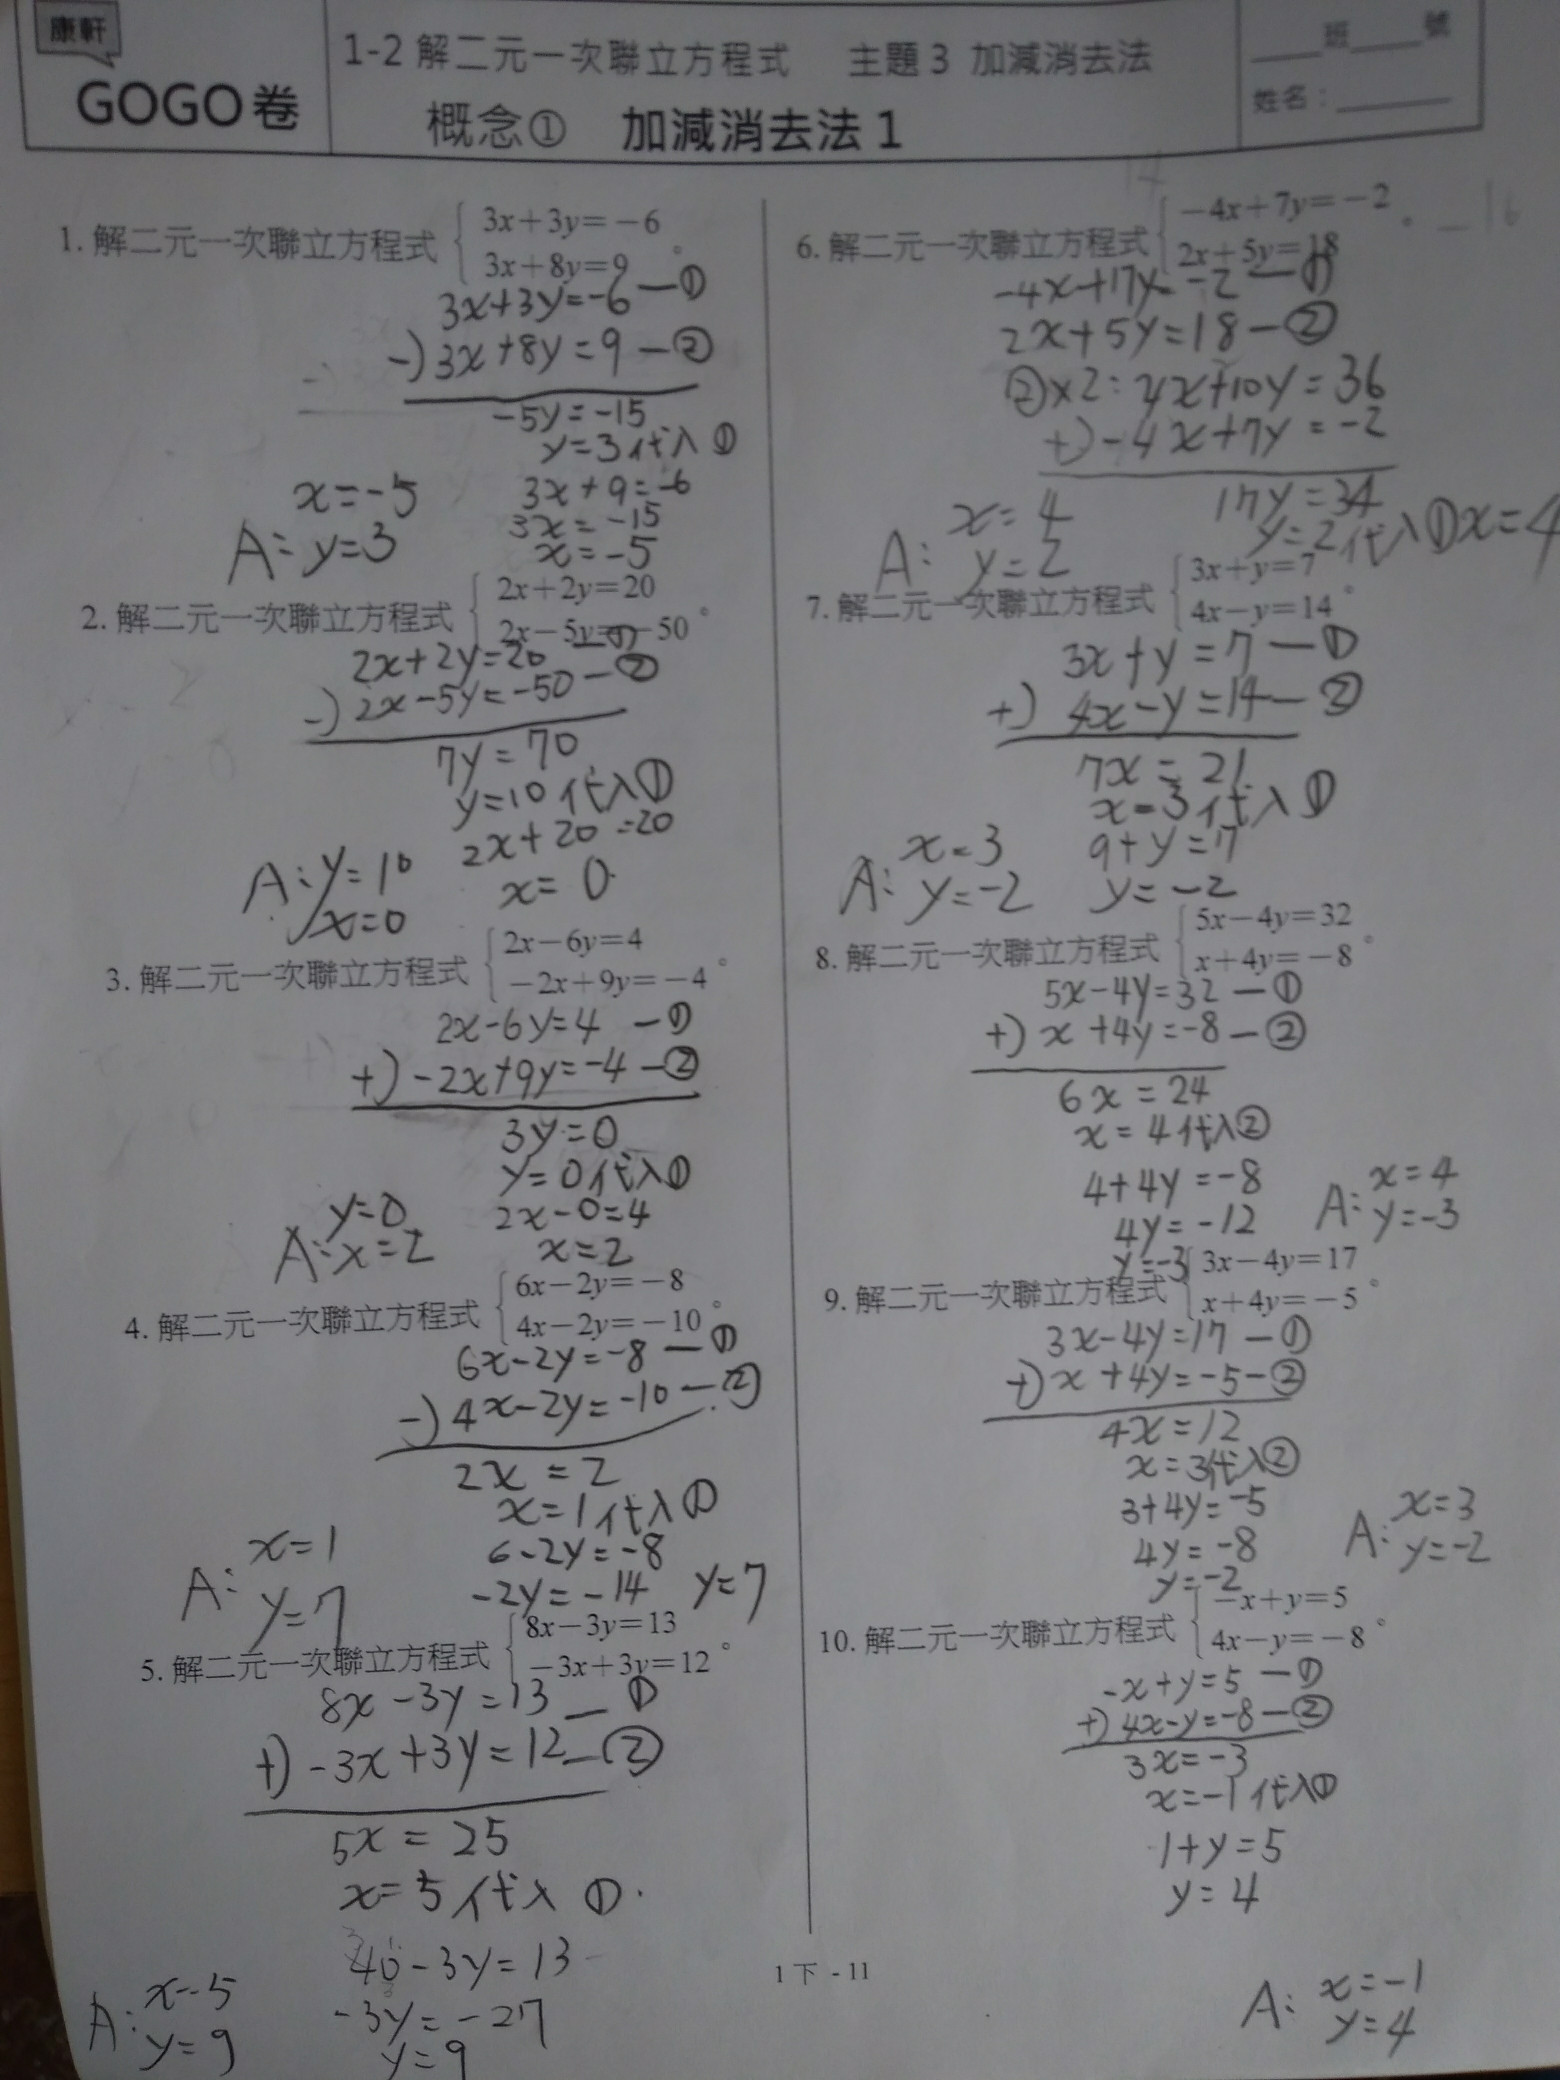 康軒
GOGO卷
1-2 解二元一次聯立方程式 主題3 加減消去法
概念① 加減消去法1
____班____號
姓名：______
1. 解二元一次聯立方程式 { 3x+3y=-6
3x+8y=9 。
3x+3y=-6 —①
-) 3x+8y=9 —②
-5y=-15
y=3代入①
3x+9=-6
3x=-15
x=-5
A: x=-5
y=3
2. 解二元一次聯立方程式 { 2x+2y=20
2x-5y=-50 。
2x+2y=20 —①
-) 2x-5y=-50 —②
7y=70
y=10代入①
2x+20=20
x=0
A: y=10
x=0
3. 解二元一次聯立方程式 { 2x-6y=4
-2x+9y=-4 。
2x-6y=4 —①
+) -2x+9y=-4 —②
3y=0
y=0代入①
2x-0=4
x=2
A: y=0
x=2
4. 解二元一次聯立方程式 { 6x-2y=-8
4x-2y=-10 。
6x-2y=-8 —①
-) 4x-2y=-10 —②
2x=2
x=1代入①
6-2y=-8
-2y=-14 y=7
A: x=1
y=7
5. 解二元一次聯立方程式 { 8x-3y=13
-3x+3y=12 。
8x-3y=13 —①
+) -3x+3y=12 —②
5x=25
x=5代入①.
40-3y=13
-3y=-27
y=9
A: x=5
y=9
6. 解二元一次聯立方程式 { -4x+7y=-2
2x+5y=18 。
-4x+17y=-2 —①
2x+5y=18 —②
②×2: 4x+10y=36
+) -4x+7y=-2
17y=34
y=2代入①x=4
A: x=4
y=2
7. 解二元一次聯立方程式 { 3x+y=7
4x-y=14 。
3x+y=7 —①
+) 4x-y=14 —②
7x=21
x=3代入①
9+y=7
y=-2
A: x=3
y=-2
8. 解二元一次聯立方程式 { 5x-4y=32
x+4y=-8 。
5x-4y=32 —①
+) x+4y=-8 —②
6x=24
x=4代入②
4+4y=-8
4y=-12
y=-3
A: x=4
y=-3
9. 解二元一次聯立方程式 { 3x-4y=17
x+4y=-5 。
3x-4y=17 —①
+) x+4y=-5 —②
4x=12
x=3代入②
3+4y=-5
4y=-8
y=-2
A: x=3
y=-2
10. 解二元一次聯立方程式 { -x+y=5
4x-y=-8 。
-x+y=5 —①
+) 4x-y=-8 —②
3x=-3
x=-1代入①
1+y=5
y=4
A: x=-1
y=4
1下 - 11